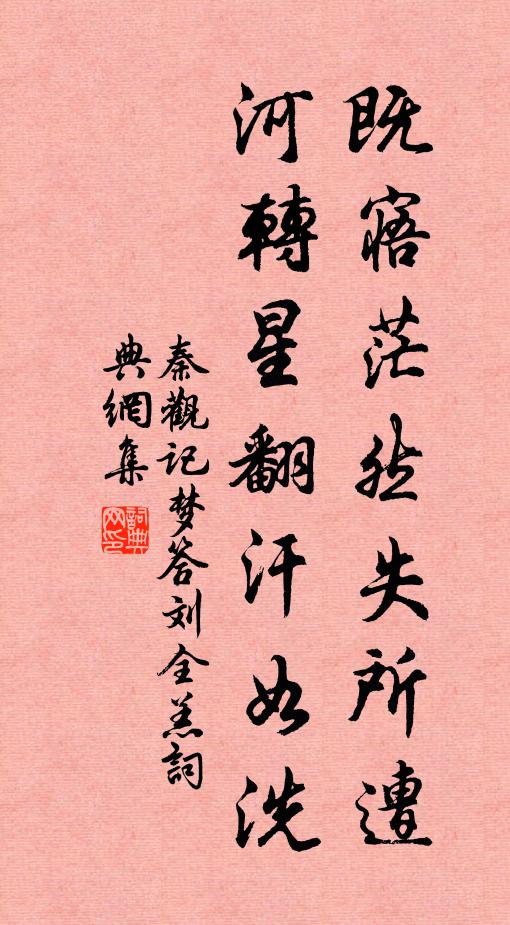 既寤茫然失所遭
河轉星翻汗如洗
秦觀记梦答刘全美詞
典網集
詞典网印